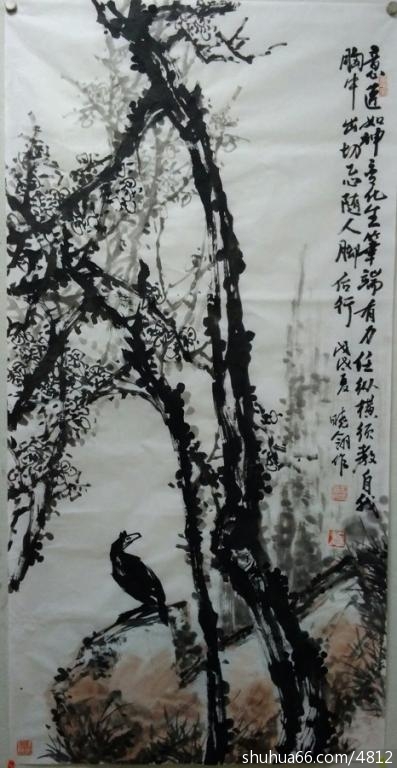 意匠如神变化生筆端有力任纵横须教自我
胸中出切忌随人脚后行
戊戌夏
晓翎作
shuhua66.com/4812